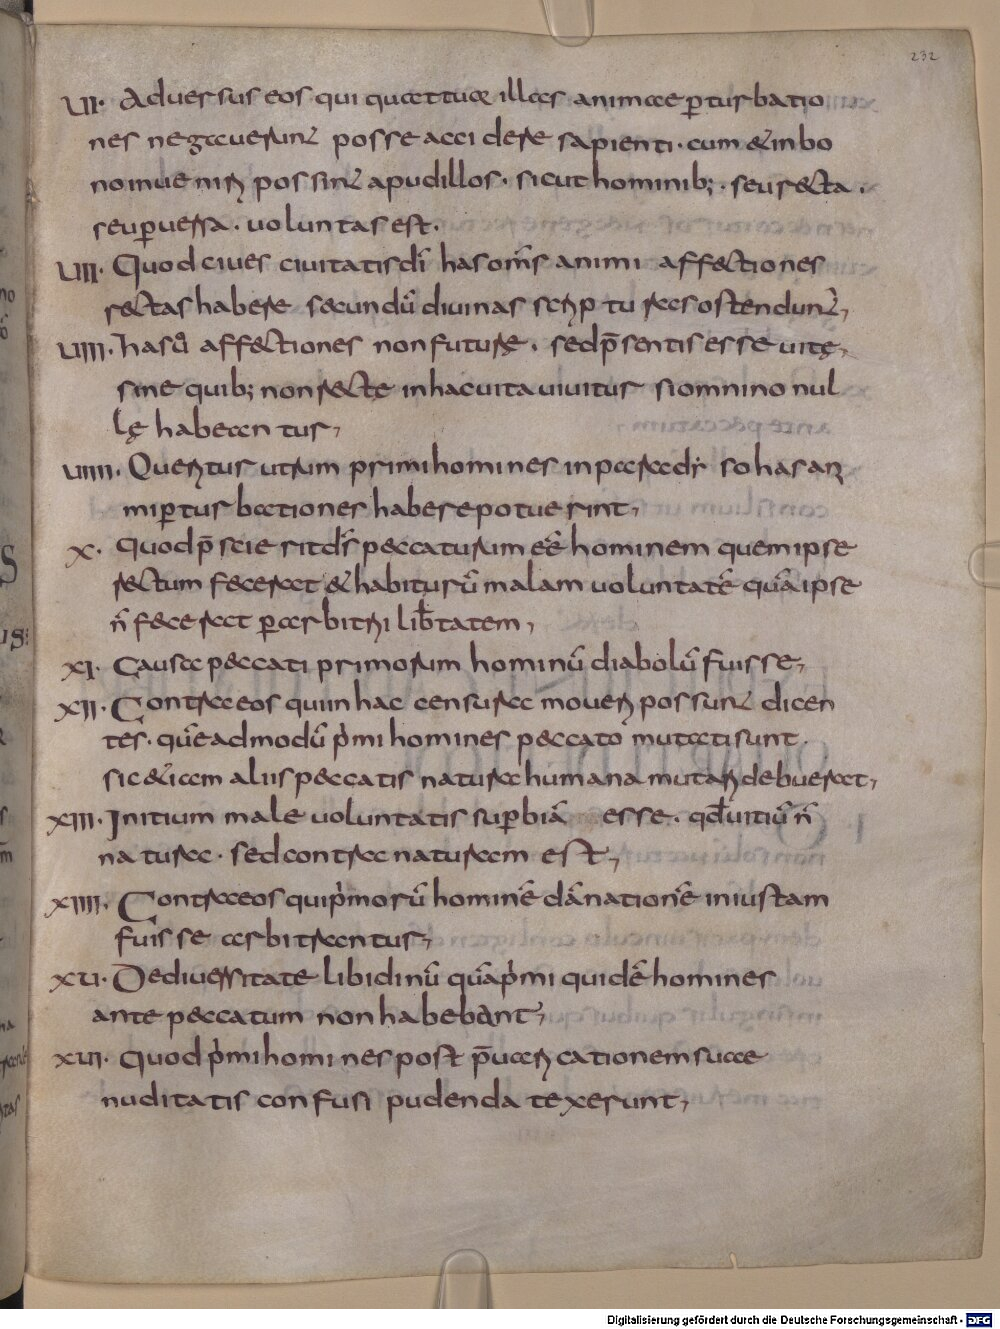 232
VII. Aduersus eos qui quattuor illas animae ꝑturbatio
nes negauerunt posse accidere sapienti. cum & in bo
no inueniri possint apud illos. sicut hominib;. seu recta.
seu ꝑuersa. uoluntas est.
VIII. Quod ciues ciuitatis dī has om̄s animi affectiones
rectas habere secundū diuinas scripturas ostendunt,
VIIII. has uº affectiones non futurę. sed p̄sentis esse uitę,
sine quib; non rectę in hac uita uiuitur si omnino nul
lę habeantur,
VIIII. Queritur utrum primi homines in paradẏso has ani
mi ꝑturbationes habere potuerint,
X. Quod p̄scierit d̄s peccaturum eē hominem quem ipse
rectum fecerat & habiturū malam uoluntatē quā ipse
n̄ fecerat ꝑ arbitrii lib̄tatem,
XI. Causa peccati primorum hominū diabolū fuisse,
XII. Contra eos qui in hac censura moueri possunt dicen
tes. quēadmodū p̍mi homines peccato mutati sunt
sic & iam aliis peccatis natura humana mutari debuerat,
XIII. Initium male uoluntatis suꝑbiā esse. qđ uitiū n̄
natura. sed contra naturam est,
XIIII. Contra eos qui p̍morū hominē dānationē iniustam
fuisse arbitrantur,
XVI. De diuersitate libidinū quā p̍mi quidē homines
ante peccatum non habebant,
XVI. Quod p̍mi homines post p̄uaricationem suae
nuditatis confusi pudenda texerunt,
Digitalisierung gefördert durch die Deutsche Forschungsgemeinschaft - DFG